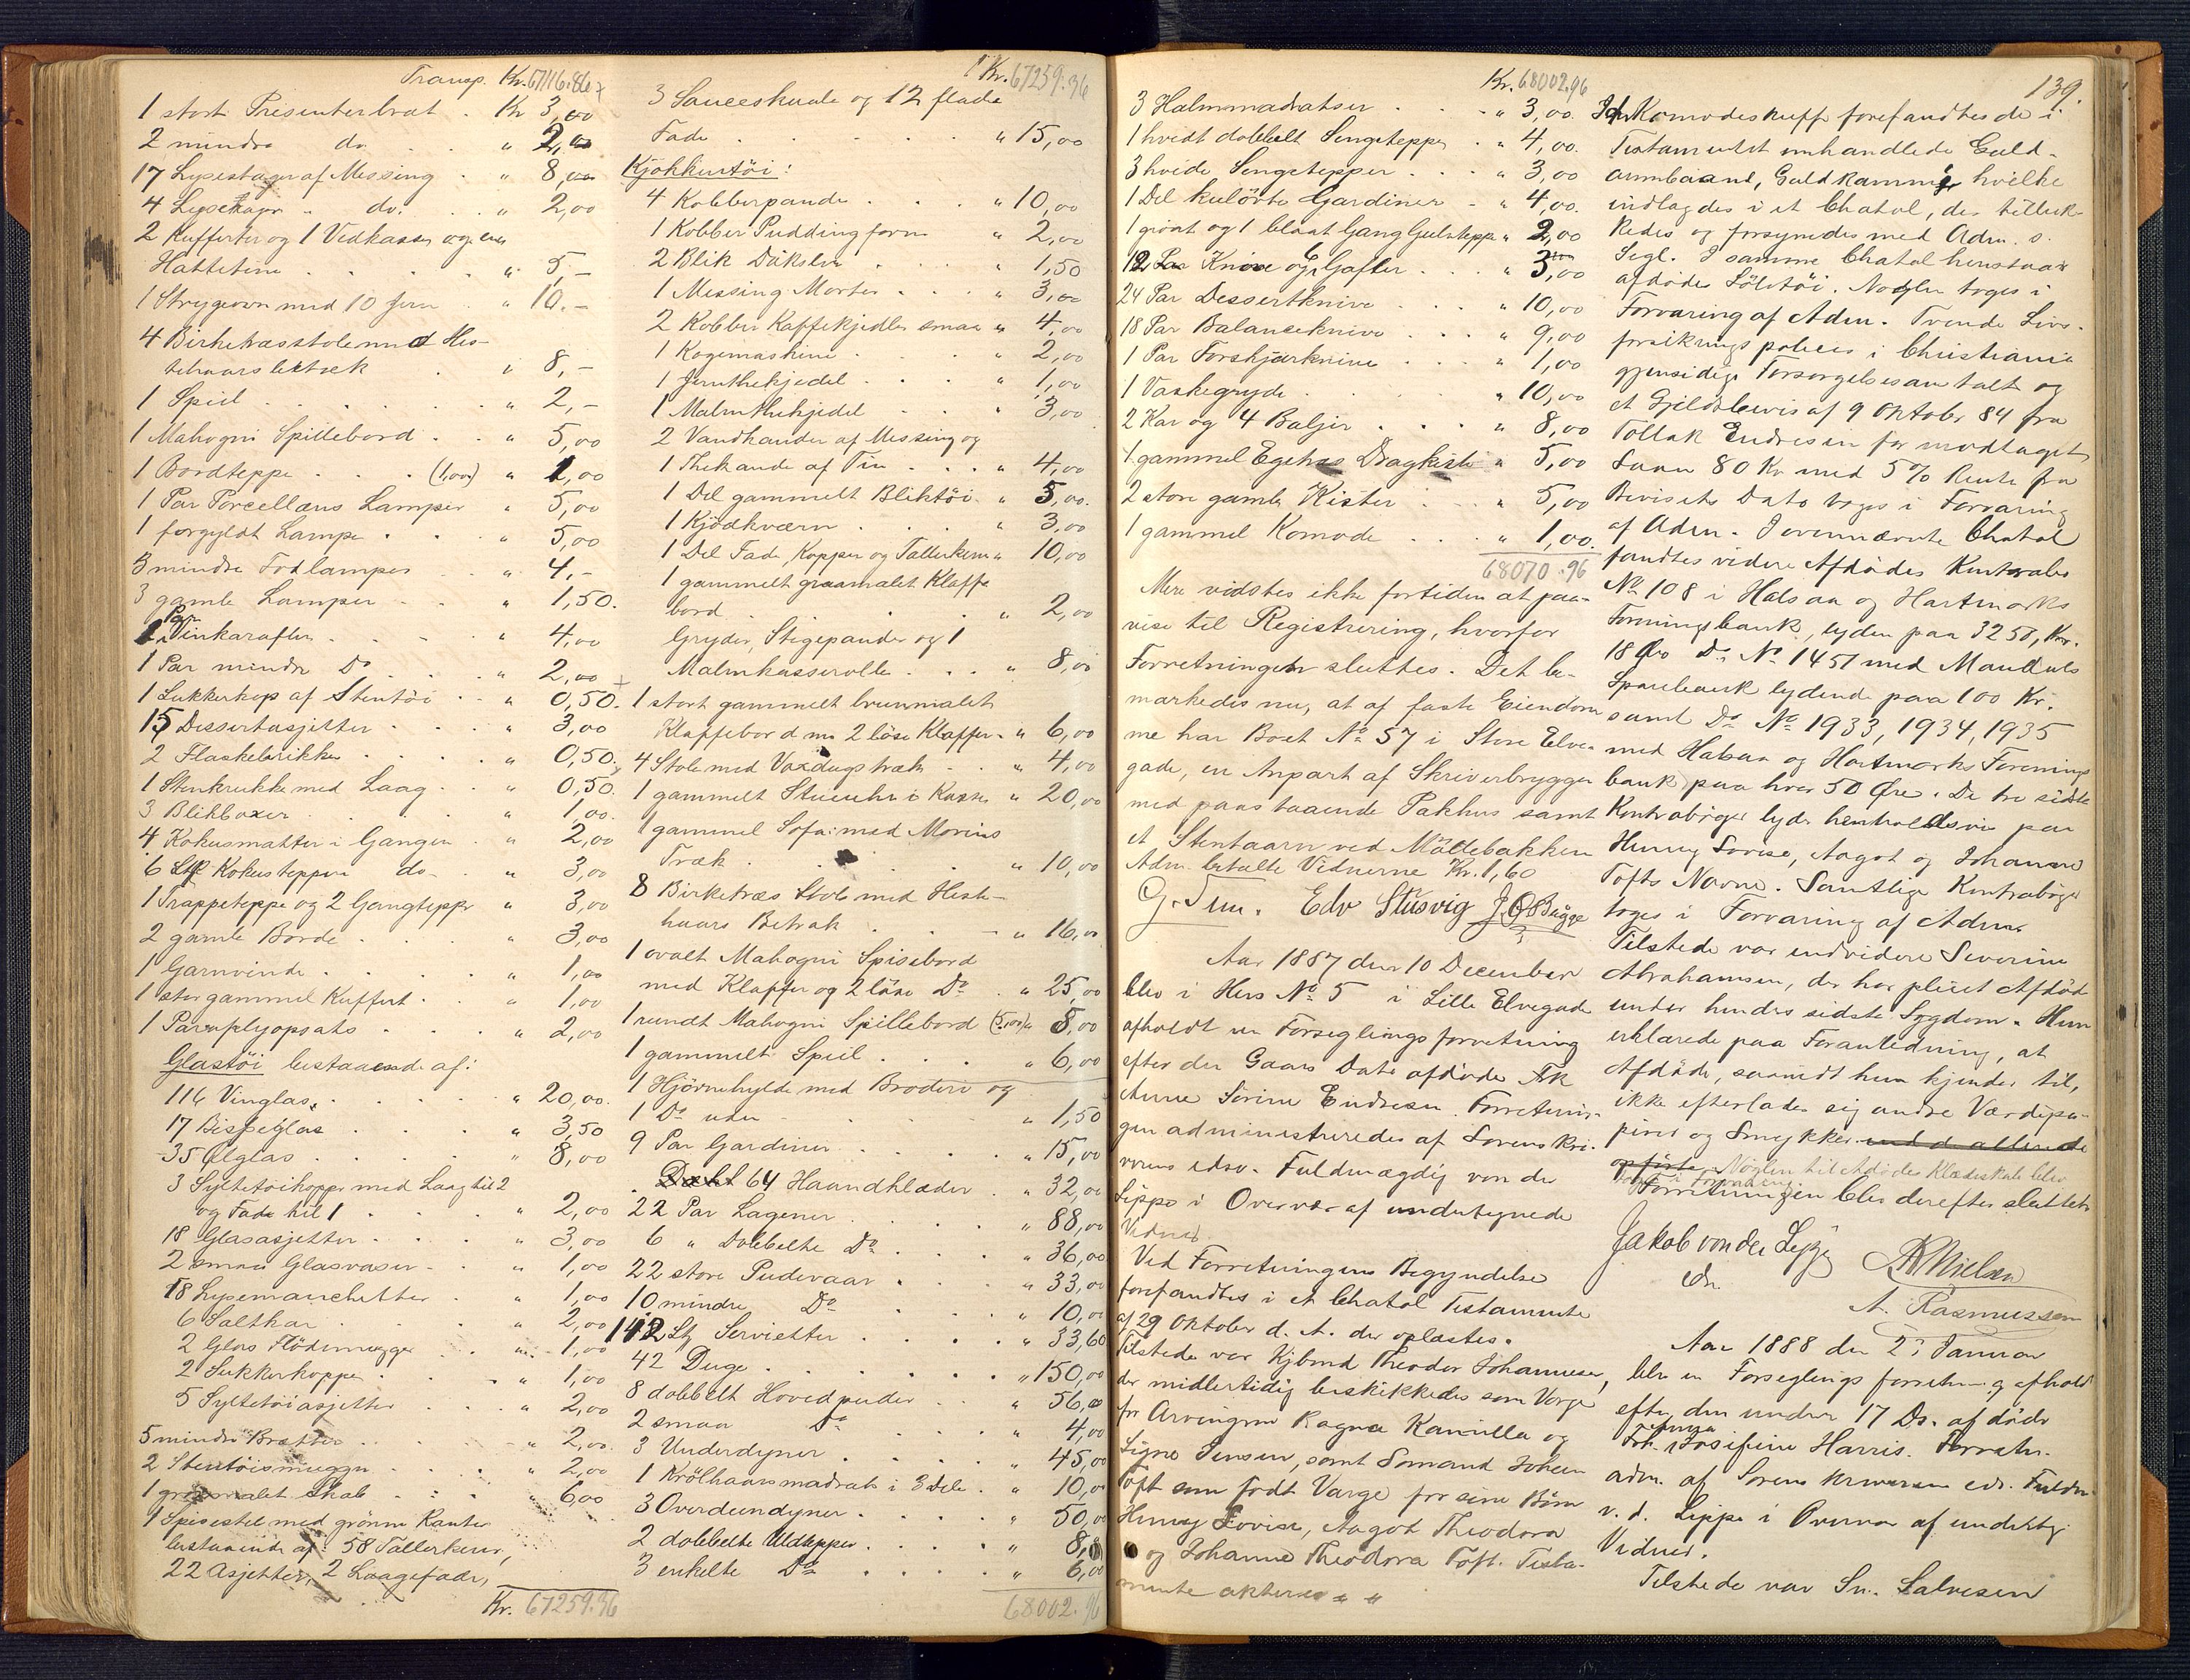 Transp. Kr. 67116.86
1 stort Presenterbræt . Kr 3,00
2 mindre do. . . " 2,00
17 Lysestager af Messing . " 8,00
4 Lysestager " do. . . " 2,00
2 Kufferter og 1 Vedkasse og en
Hattetine . . . . " 5,–
1 Strygeovn med 10 Jern . " 10.–
4 Birketræsstole med Hes-
tehaarsbetræk . " 8,–
1 Speil . . . . . . " 2,–
1 Mahogni Spillebord . . " 5,00
1 Bordteppe . . . (1,00) " 1,00
1 Par Porcellæns Lamper " 5,00
1 forgyldt Lampe . . . " 5,00
3 mindre Fodlamper . . " 4.–
3 gamle Lamper . . . " 1,50.
2 Par Vinkarafler . . . . " 4,00
1 Par mindre Do . . . " 2,00
1 Sukkerkop af Stentöi . . " 0,50.
15 Dessertasjetter . . . " 3,00
2 Flaskebrikker . . . . " 0,50.
1 Stenkrukke med Laag . . " 0,50.
3 Blikboxer . . . . " 1,00.
4 Kokusmatter i Gangen . " 2,00
6 Stk Kokusteppe do- . " 3,00
1 Trappeteppe og 2 Gangtepper " 3,00
2 gamle Borde . . . . " 3,00
1 Garnvinde . . . . " 1,00
1 stor gammel Kuffert . . " 1,00
1 Paraplyopsats . . . " 2,00
Glastöi bestaaende af:
116 Vinglas . . . . " 20,00.
17 Bispeglas . . . . " 3,50
35 Ølglas . . . . . " 8,00
3 Syltetöikopper med Laag til 2
og Fade til 1 . . . . " 2,00
18 Glasasjetter . . . " 3,00
2 smaa Glasvaser . . " 1,00
18 Lysemanchetter . . " 1,00
6 Saltkar . . . . " 2,00
2 Glas Flödemugger . " 1,00
2 Sukkerkopper . . . " 1,00
5 Syltetöiasjetter . . . " 2,00
5 mindre Brætter . . . " 2,00.
2 Stentöismugger . . . " 2,00
1 graamalet Skab . . . " 6,00
1 Spisestel med grönne Kanter
bestaaende af: 58 Tallerkener,
22 Asjetter, 2 Laagefade,
Kr. 67259.36
Kr. 67259.36
3 Sauceskaale og 12 flade
Fade . . . . . . " 15,00
Kjökkentöi:
4 Kobberpander . . . " 10,00
1 Kobber Puddingform " 2,00
2 Blik Dörslev . . . . " 1,50
1 Messing Morter . . . " 3,00
2 Kobber Kaffekjedler smaa " 4,00
1 Kogemaskine . . . . " 2,00
1 Jernthekjedel . . . . " 1,00
1 Malmthekjedel . . . " 3,00
2 Vandkander af Messing og
1 Thekande af Tin . . . " 4,00
1 Del gammelt Bliktöi . " 5,00.
1 Kjödkværn . . . . " 3,00
1 Del Fade, Kopper og Tallerkener " 10,00
1 gammelt graamalet Klaffe
bord . . . . . . " 2,00
Gryder, Stegepander og 1
Malmkasserolle . . . " 8,00
1 stort gammelt brunmalet
Klaffebord m 2 löse Klaffer . " 6,00
4 Stole med Voxdugstræk . " 4,00
1 gammelt Stueuhr i Kasse " 20,00
1 gammel Sofa med Moriens
Træk . . . . . . " 10,00
8 Birketræs Stole med Heste-
haars Betræk . . . . " 16,00
1 ovalt Mahogni Spisebord
med Klaffer og 2 löse Do . " 25,00
1 rundt Mahogni Spillebord (5,00) " 8,00
1 gammelt Speil . . . " 6,00
1 Hjörnehylde med Broderi og
1 Do uden . . . . " 1,50
9 Par Gardiner . . . . " 15,00
64 Haandklæder . " 32,00
22 Par Lagener . . . . " 88,00
6 " Dobbelte Do . . . " 36,00
22 store Pudevaar . . . " 33,00
10 mindre Do . . . " 10,00
142 Stk Servietter . . . " 33,60
42 Duge . . . . . . " 150,00
8 dobbelt Hovedpuder . . " 56,00
2 smaa Do . . " 4,00
3 Underdyner . . . . " 45,00
1 Krölhaarsmadrats i 3 Dele . " 10,00
3 Overdundyner . . . . " 50,00
2 dobbelte Uldtepper . . . " 8,00
3 enkelte Do . . . . " 6,00
68002.96
Kr. 68002.96
3 Halmmadratser . . . " 3,00.
1 hvidt dobbelt Sengeteppe . " 4,00.
3 hvide Sengetepper . . . " 3,00
1 Del kulörte Gardiner - " 4,00.
1 graat og 1 blaat Gang Gulvteppe " 2,00
12 Par Knive og Gafler . . . " 3,00
24 Par Dessertknive . . " 10,00
18 Par Balanceknive . . . " 9,00
1 Par Forskjærknive . . . " 1,00
1 Vaskegryde . . . . . " 10,00
2 Kar og 4 Baljer . . . " 8,00
1 gammel Egetræs Dragkiste " 5,00
2 store gamle Kister . . " 5,00
1 gammel Komode . . . " 1,00.
68070.96
Mere vidstes ikke fortiden at paa-
vise til Registrering, hvorfor
Forretningen sluttes. Det be-
mærkedes nu, at af faste Eiendom
me har Boet No 57 i Store Elve-
gade, en Anpart af Skriverbryggen
med paastaaende Pakhus samt
et Stentaarn ved Mällebakken
Adm. betalte Vidnerne Kr. 1,60
Edv Stusvig J. O. Bugge
Aar 1887 den 10 December
blev i Hus No 5 i Lille Elvegade
afholdt en Forseglingsforretning
efter den Gaars Dato afdöde Frk
Anne Sörine Endresen. Forretnin-
gen administreredes af Sorenskri-
verens edsv. Fuldmægdig von der
Lippe i Overvær af undertegnede
Vidner.
Ved Forretningens Begyndelse
forefandtes i et Chatol Testamente
af 29 Oktober d. A. der oplæstes.
Tilstede var Kjbmd Theodor Johannesen,
der midlertidig beskikkedes som Værge
for Arvingerne Ragna Kamilla og
Signe Jensen, samt Sömand Johan
Toft som födt Værge for sine Börn
Henny Lovise, Aagot Theodora
og Johanne Theodora Toft. Testa-
mente akteres " "
139.
I en Komodeskuffe forefandtes de i
Testamentet omhandlede Guld-
armbaand, Guldkamme, hvilke
indlagdes i et Chatol, der tilluk-
kedes og forsynedes med Adm. s.
Segl. I samme Chatol henstaar
afdödes Sölvtöi. Nöglen toges i
Forvaring af Adm. Tvende Livs-
forsikringspolicer i Christiania
gjensidige Forsörgelsesanstalt og
et Gjeldsbevis af 9 Oktober 84 fra
Tollak Endresen for modtaget
Laan 80 Kr med 5 % Rente fra
Bevisets Dato toges i Forvaring
af Adm. I ovennævnte Chatol
fandtes videre Afdödes Kontrabog
No 108 i Halsaa og Hartmarks
Foreningsbank, lyden paa 3250, Kr.
18 Öre Do No 1451 med Mandals
Sparebank lydende paa 100 Kr.
samt Do No 1933, 1934, 1935
med Halsaa og Hartmarks Forenings
bank paa hver 50 Øre. De tre sidste
Kontraböger lyder henholdsvis paa
Henny Lovise, Aagot og Johanne
Tofts Navne. Samtlige Kontraböger
toges i Forvaring af Adm.
Tilstede var endvidere Severine
Abrahamsen, der har pleiet Afdöde
under hendes sidste Sygdom. Hun
erklærede paa Foranledning, at
Afdöde, saavidt hun kjender til,
ikke efterlader sig andre Værdipa-
pirer og Smykker end de allerede
opförte. Nöglen til Afdödes Klædeskab blev
tagen i Forvaring
Forretningen blev derefter sluttet
Jakob von der Lippe
edv.
Nielsen
A. Rasmussen
Aar 1888 den 2. Januar
blev en Forseglings forretning afholdt
efter den under 17 Ds. afdöde
Frk. Josifine Harris. Forretn.
adm. af Sorenskriverens edv. Fuldm.
v. d. Lippe i Overvær af undertegn.
Vidner.
Tilstede var Sn. Salvesen